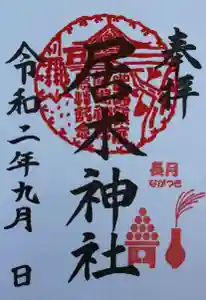 奉拝
居木神社
長月
ながつき
令和二年九月 日